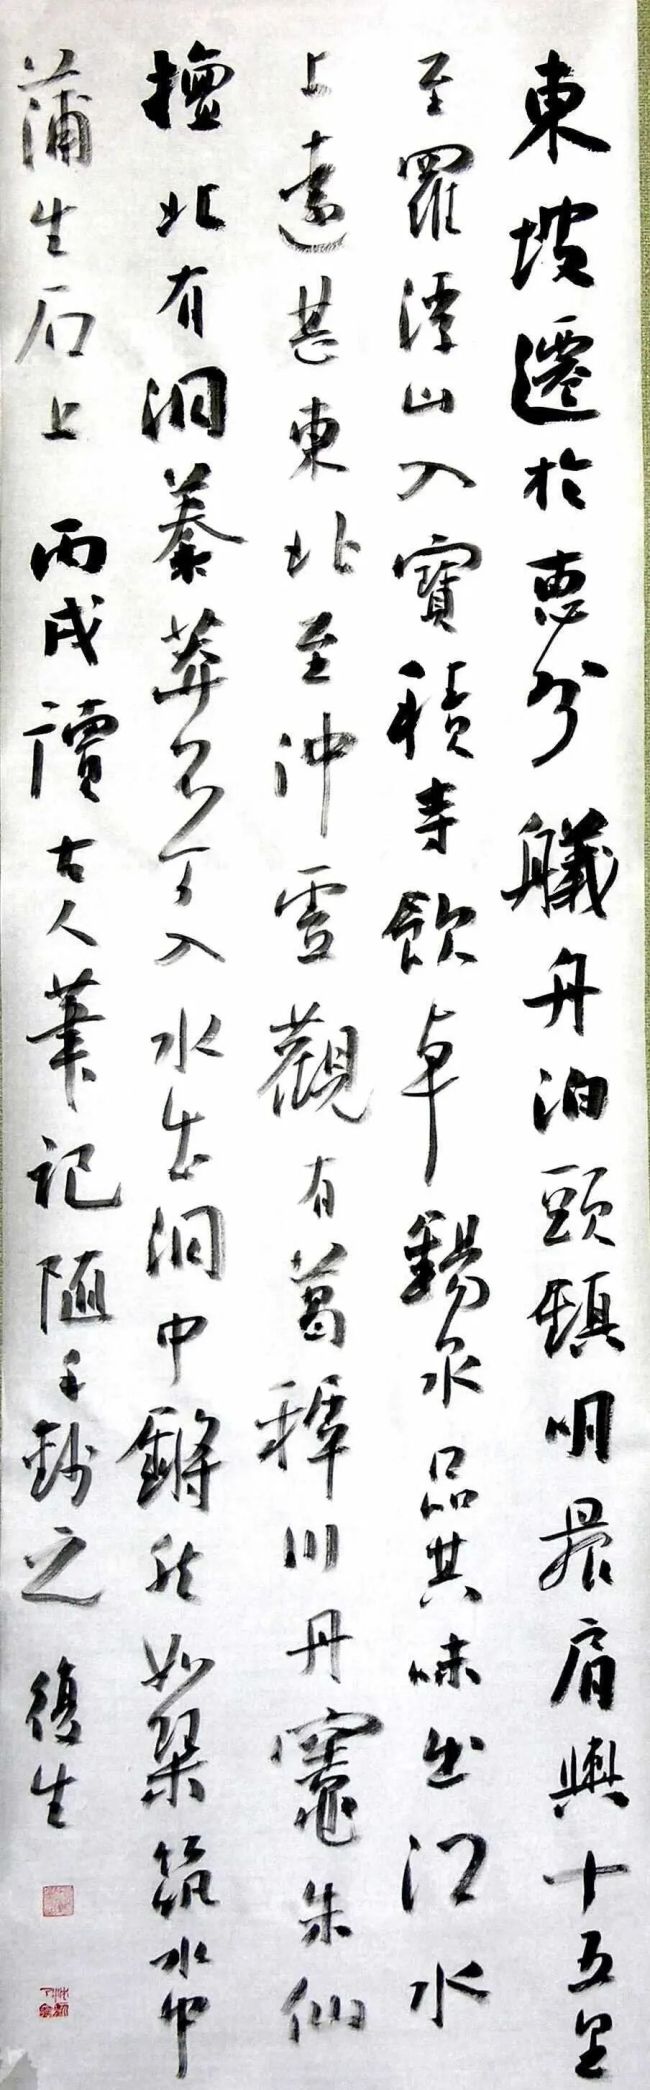 東坡遷於惠州艤舟泊頭鎮明晨肩輿十五里
至羅浮山入寶積寺飲卓錫泉品其味出江水
上遠甚東北至沖虛觀有葛稚川丹竈朱仙
壇北有洞蓁莽不可入水出洞中鏘然如琴筑水中
蒲生石上 丙戌讀古人筆記随手鈔之 復生